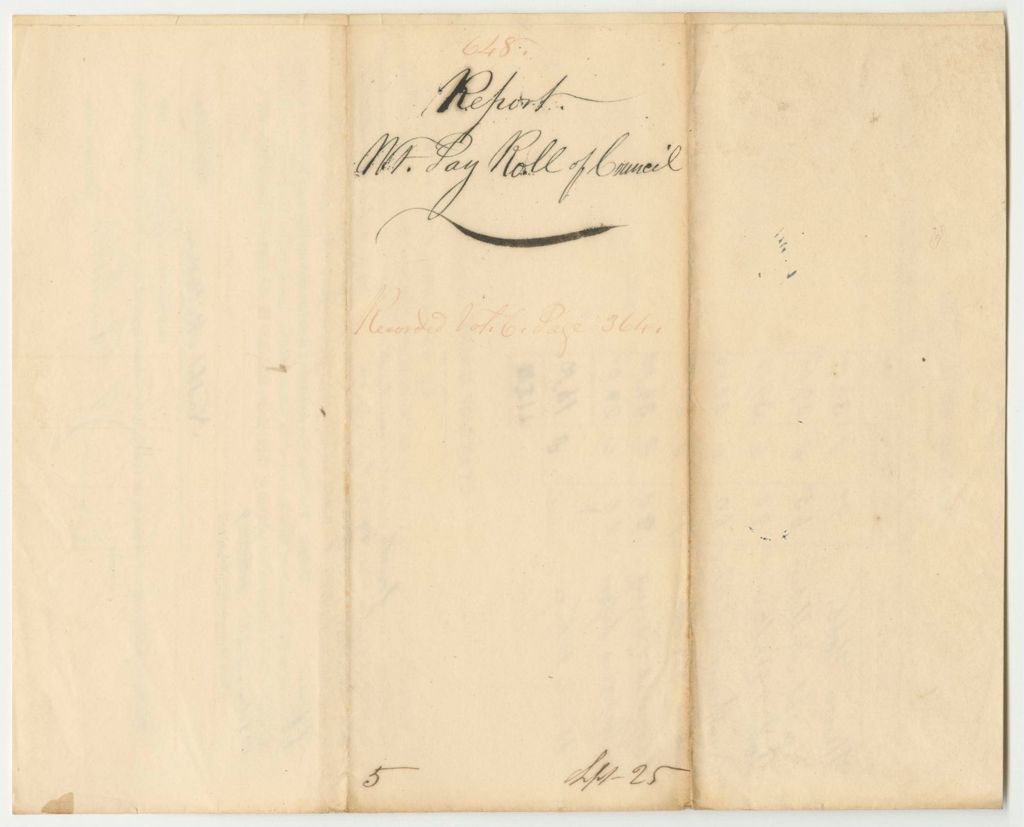 648.
Report.
Wt. Pay Roll of Council
Recorded Vol. 6. Page 364.
5 Sept 25